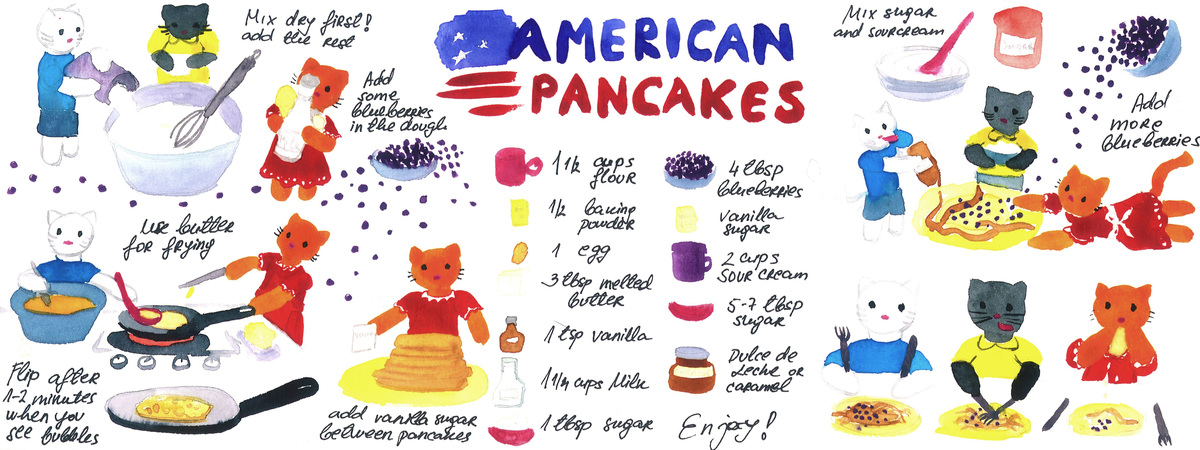 Mix dry first!
add the rest
AMERICAN
PANCAKES
Add
some
blueberries
in the dough
Use butter
for frying
Flip after
1-2 minutes
when you
see bubbles
add vanilla sugar
between pancakes
1 1/2 cups
flour
1/2 baking
powder
1 egg
3 tbsp melted
butter
1 tsp vanilla
1 1/4 cups Milk
1 tbsp sugar
4 tbsp
blueberries
vanilla
sugar
2 cups
sour cream
5-7 tbsp
sugar
Dulce de
Leche or
caramel
Enjoy!
Mix sugar
and sourcream
Add
more
blueberries